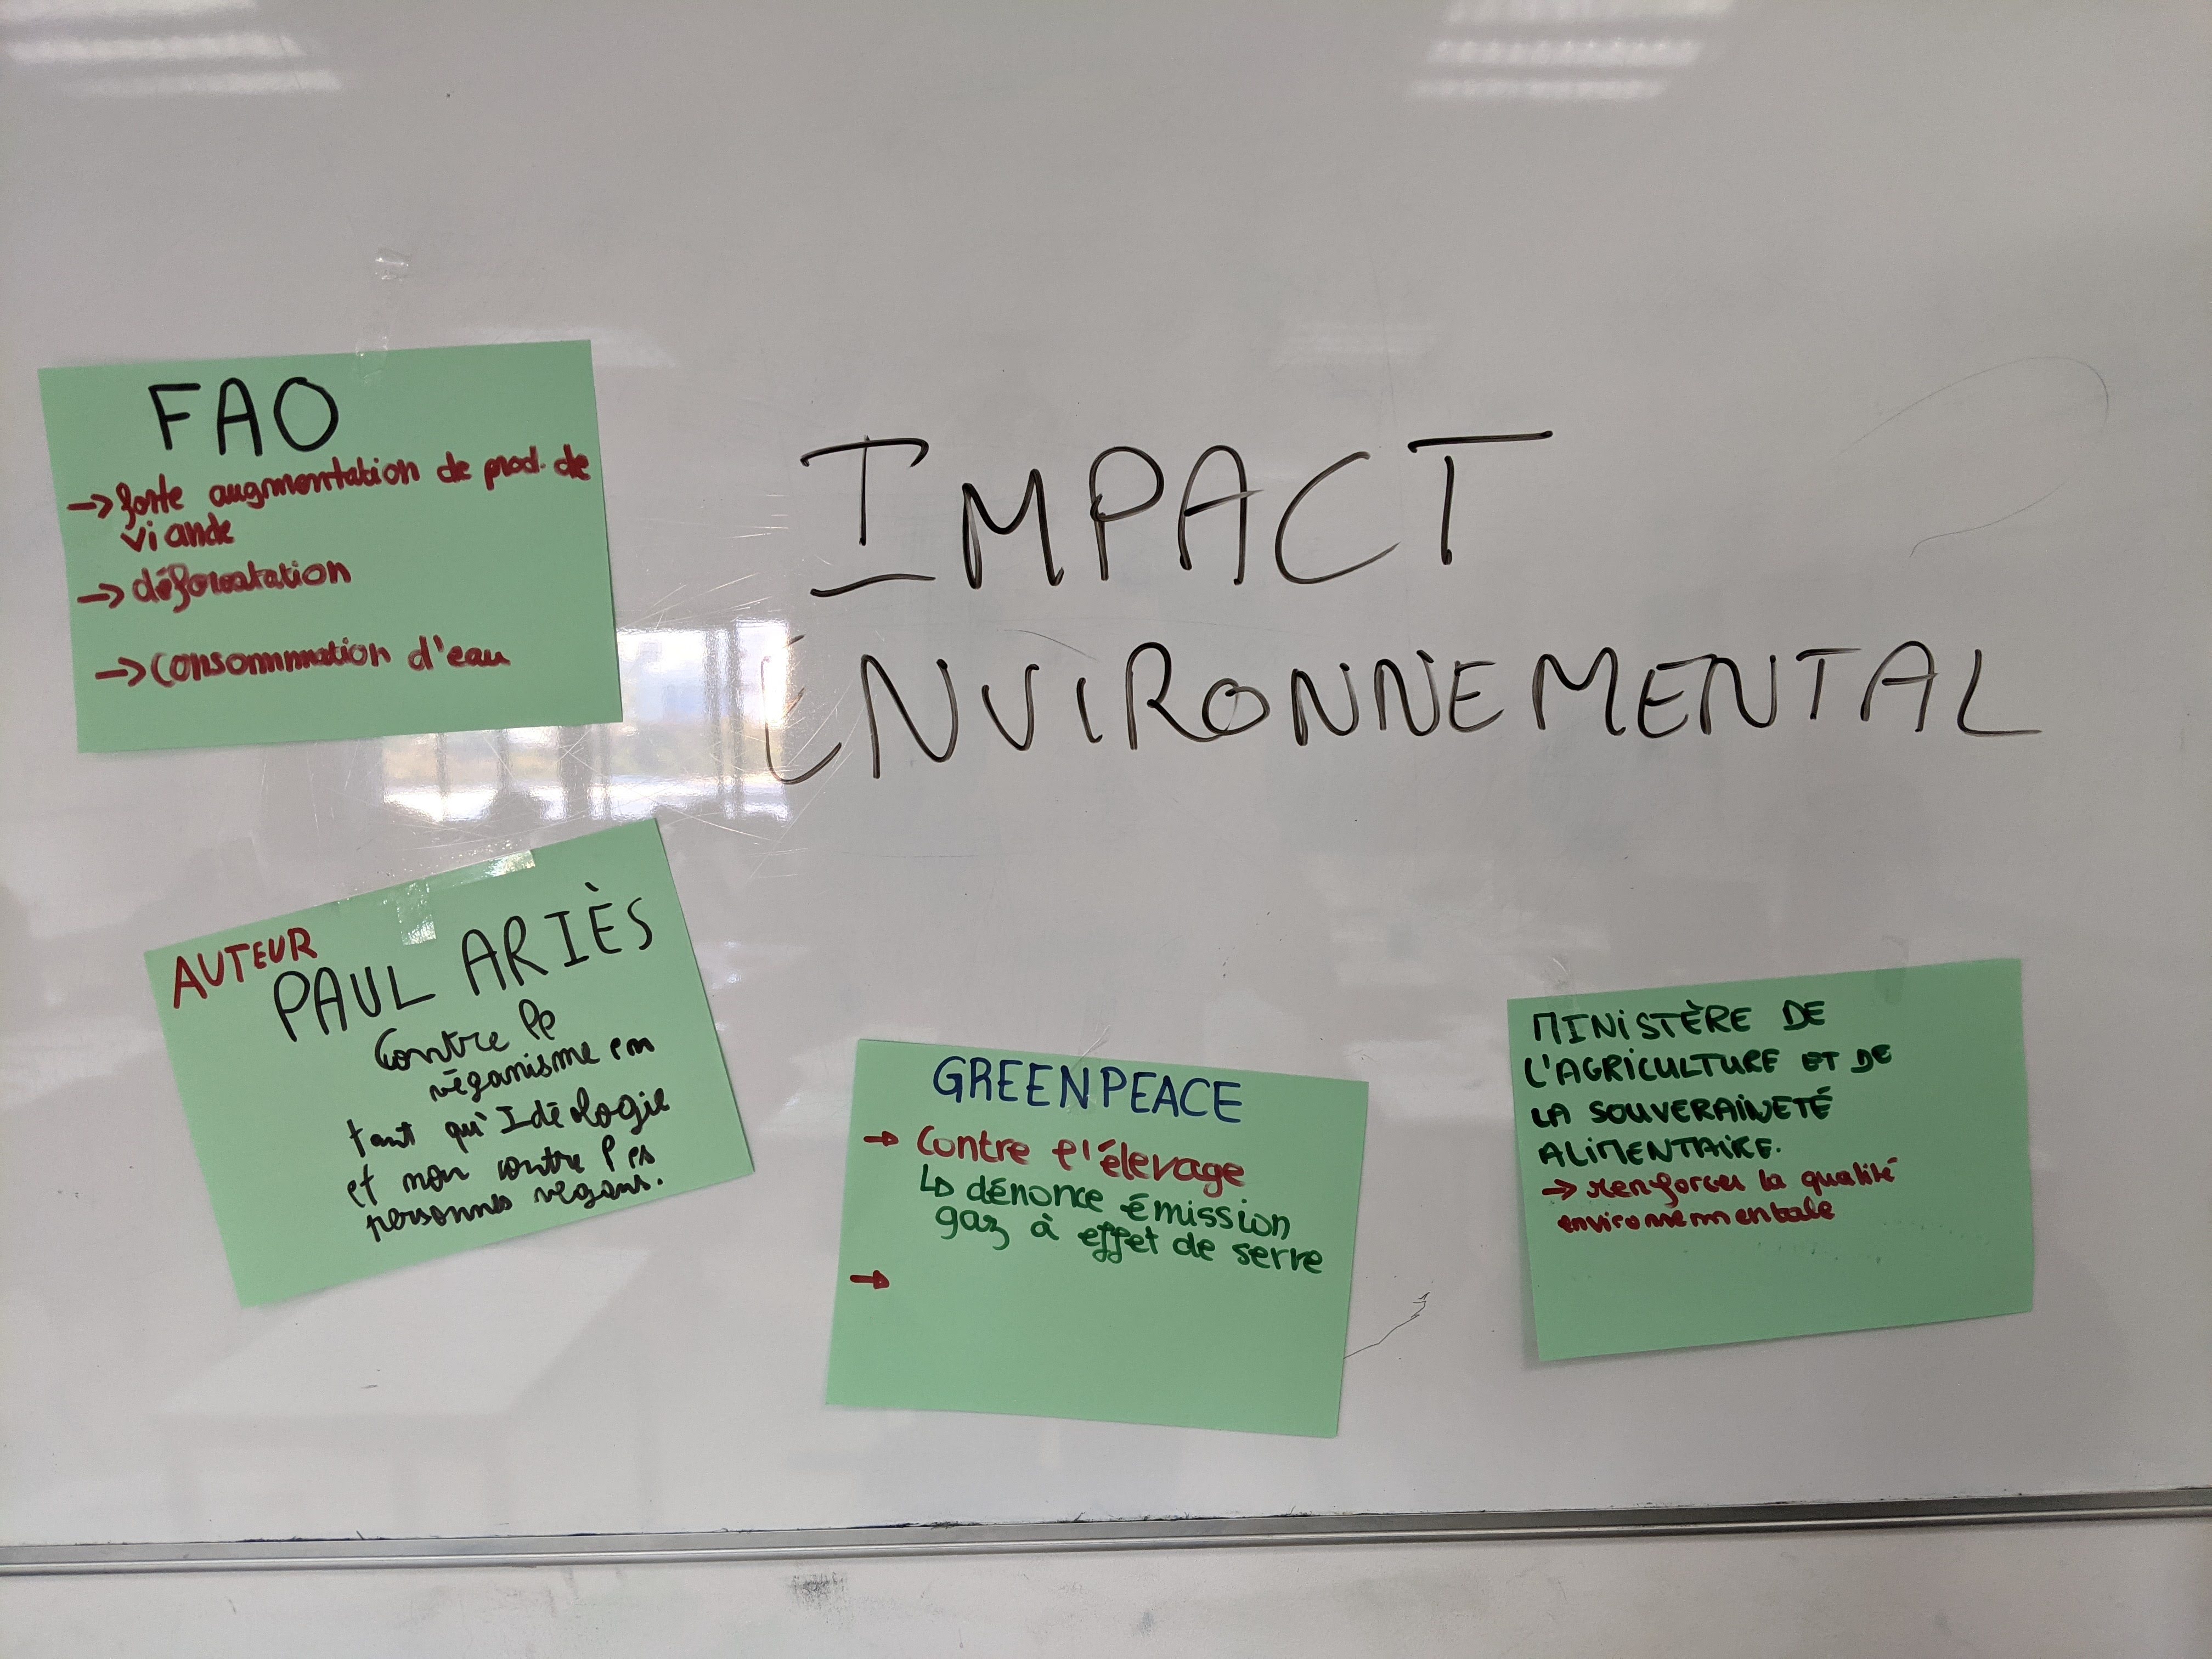 FAO
→ forte augmentation de prod. de
viande
→ déforestation
→ consommation d'eau
IMPACT
ENVIRONNEMENTAL
AUTEUR
PAUL ARIÈS
Contre le
véganisme en
tant qu'Idéologie
et non contre les
personnes végans.
GREENPEACE
→ Contre l'élevage
↳ dénonce émission
gaz à effet de serre
→
MINISTÈRE DE
L'AGRICULTURE ET DE
LA SOUVERAINETÉ
ALIMENTAIRE.
→ renforcer la qualité
environnementale